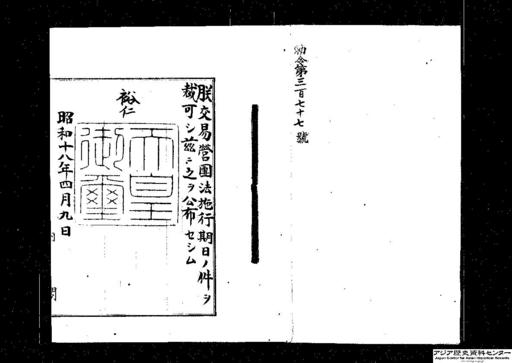 勅令第三百七十七號
朕交易營團法施行期日ノ件ヲ
裁可シ茲ニ之ヲ公布セシム
裕仁
天皇
御璽
昭和十八年四月九日
アジア歴史資料センター
Japan Center for Asian Historical Records